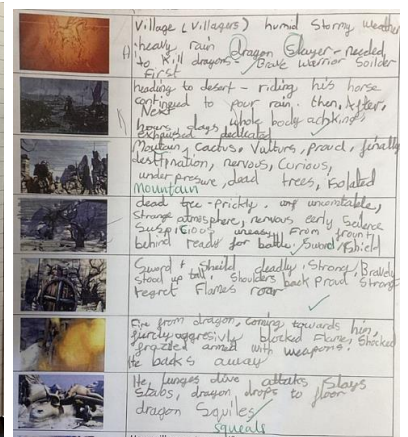 Village (villagers) humid Stormy weather
heavy rain Dragon Slayer - needed
to kill dragons - Brave Warrior Soilder
First
heading to desert - riding his horse
continued to pour rain. then, After,
Next
hours, days, whole body achking,
exhausted dedicated
Moutain, Cactus, Vulturs, proud, finally
destination, nervous, Curious,
under presure, dead trees, isolated
mountain
dead tree - prickly, uncomtable,
Strange atmosphere, nervous early
Suspicious uneasy, From
behind ready for battle. Sword, shield
Sword + Sheild deadly, Strong, Bravely
stood up tall, Shoulders back Proud Strong
regret Flames roar
Fire from dragon, coming towards him,
blocked Flames, Shocked
armed with weapons.
He backs away
He, lunges dive attacks Slays
Stabs, dragon, drops to floor
dragon
squeals